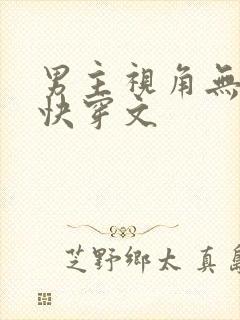 男主視角無
快穿文
芝野鄉太 真島